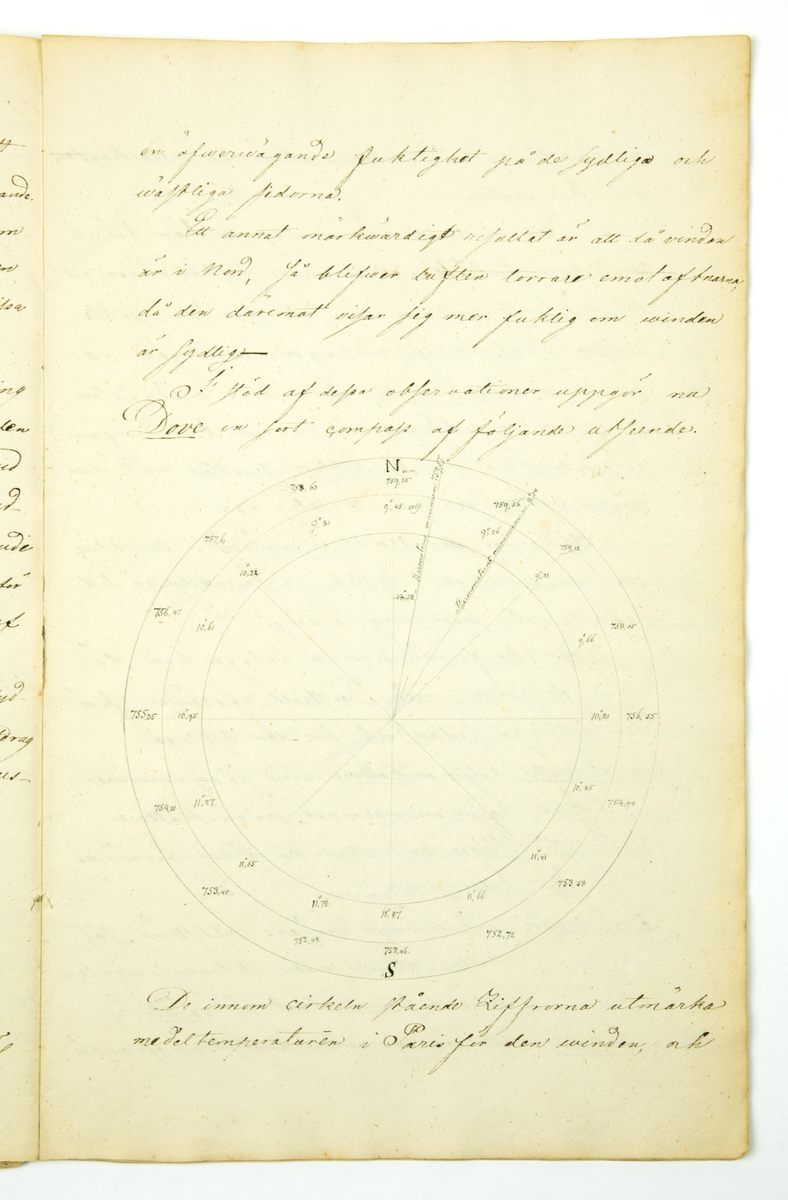 en öfwervägande fuktighet på de sydliga och
wästliga sidorna.
Ett annat märkwärdigt resultat är att då vinden
är i Nord, så blifwer luften torrare emot aftnarna,
då den däremot visar sig mer fuktig om winden
är sydlig
I stöd af dessa observationer uppgör nu
Dove en sort compass af följande utseende.
N
759,25
758,63
759,56
9°,45
9°,81
9°,26
757,61
759,12
10°,22
9°,31
756,47
758,05
10°,61
9°,66
755,35
10°,95
10°,21
756,55
754,21
11°,27
10°,85
754,94
11°,55
11°,41
753,40
753,58
11°,76
11°,87
11°,66
752,94
752,46
752,72
S
De innom cirkeln stående Ziffrorna utmärka
medeltemperaturen i Paris för den winden, och